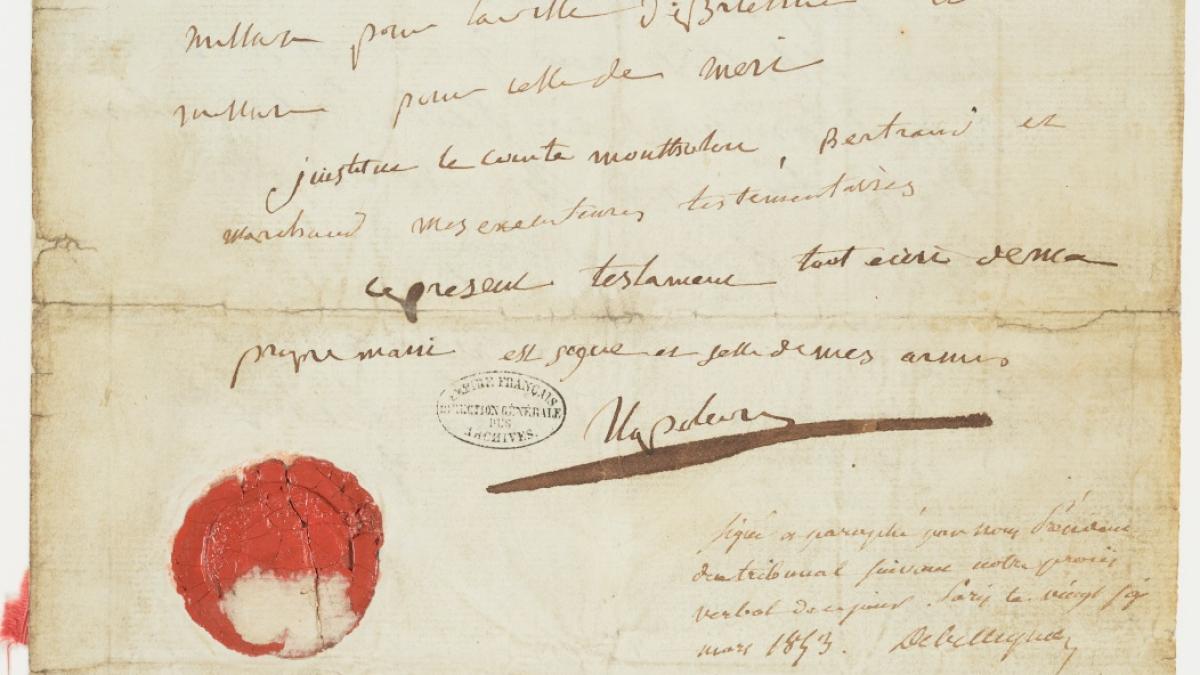 million pour la ville de Brienne et
million pour celle de meri
j'institue le comte montholon, Bertrand et
marchand mes executeures testementaires
ce present testament tout ecrit de ma
propre main est signe et selle de mes armes
EMPIRE FRANÇAIS
DIRECTION GÉNÉRALE
DES
ARCHIVES.
Napoleon
Signé et paraphé par nous Président
du tribunal suivant notre procès
verbal de ce jour. Paris le vingt six
mars 1853.